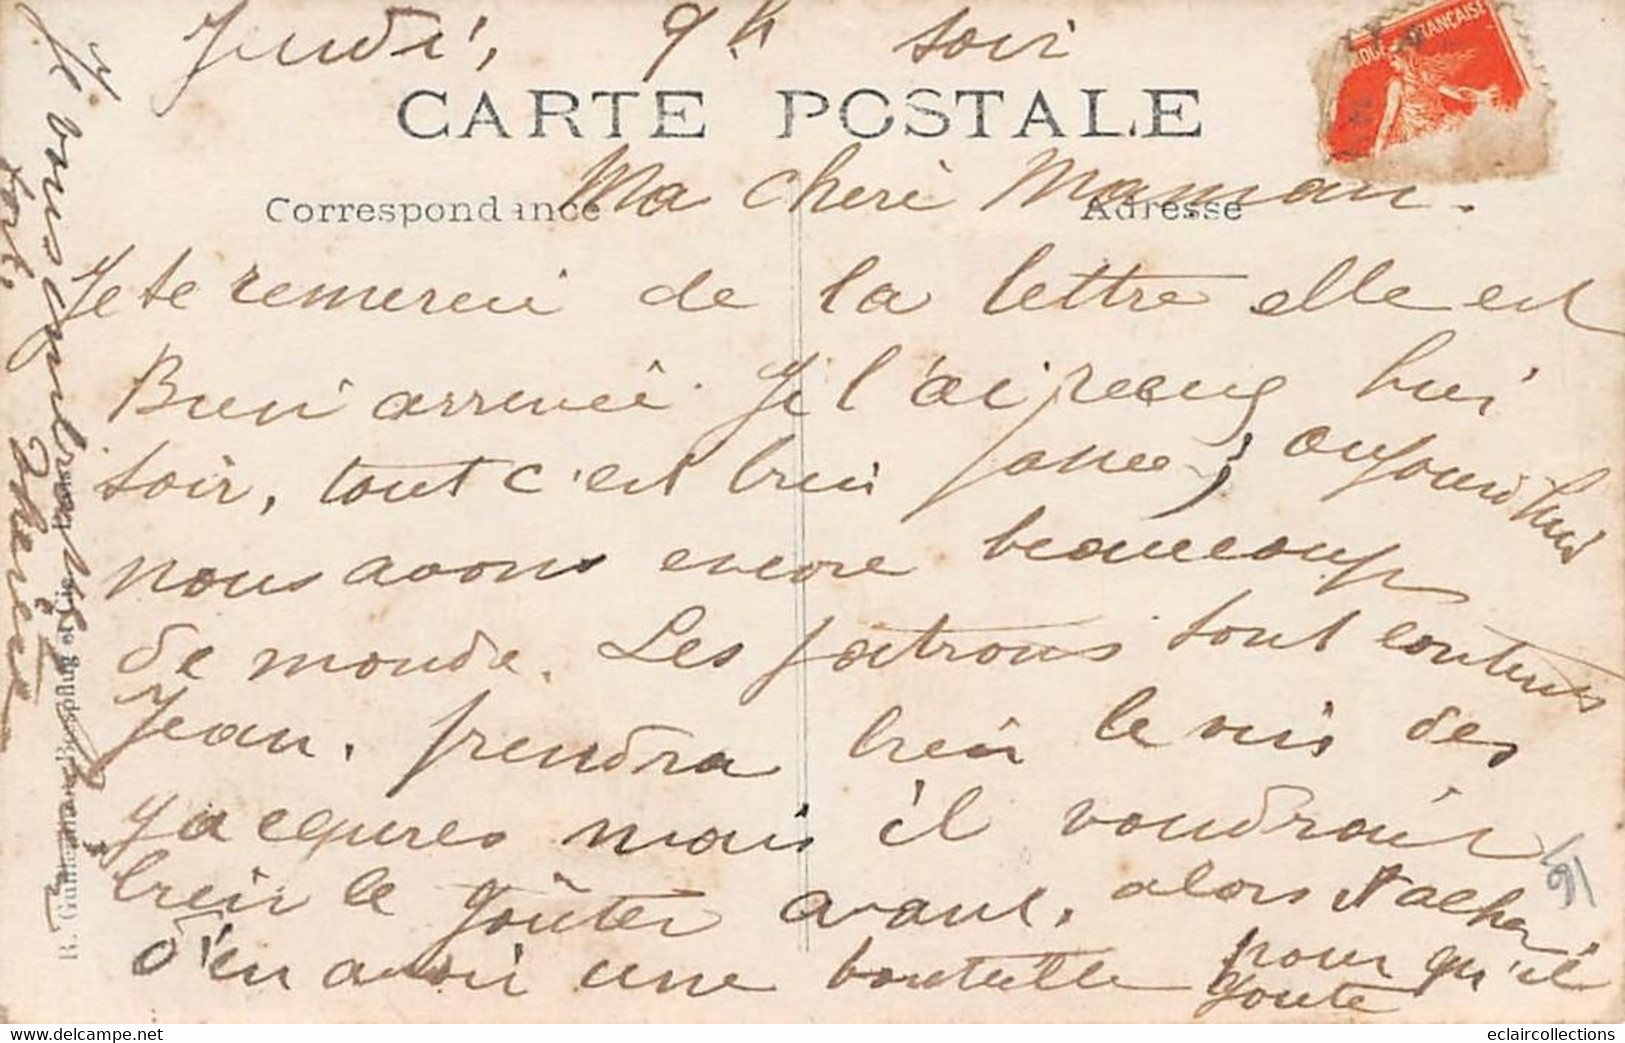 Jeudi, 9h soir
CARTE POSTALE
RANÇAISE
Correspondance
Adresse
Ma cheri Maman.
Je te remercii de la lettre elle est
Bien arrivéi. Je l'ai recus hier
soir, tout c'est bien passe, aujourd'hui
nous avons encore beaucoup
de monde. Les patrons sont contents
Jean. prendra bien le vin des
jacques mais il voudrais
bien le goûter avant. alors tache
d'en avoir une bouteille pour qu'il
goute
Je vous embrasse
fort,
B. Guilleminot, Bœspflug et Cie
eclaircollections